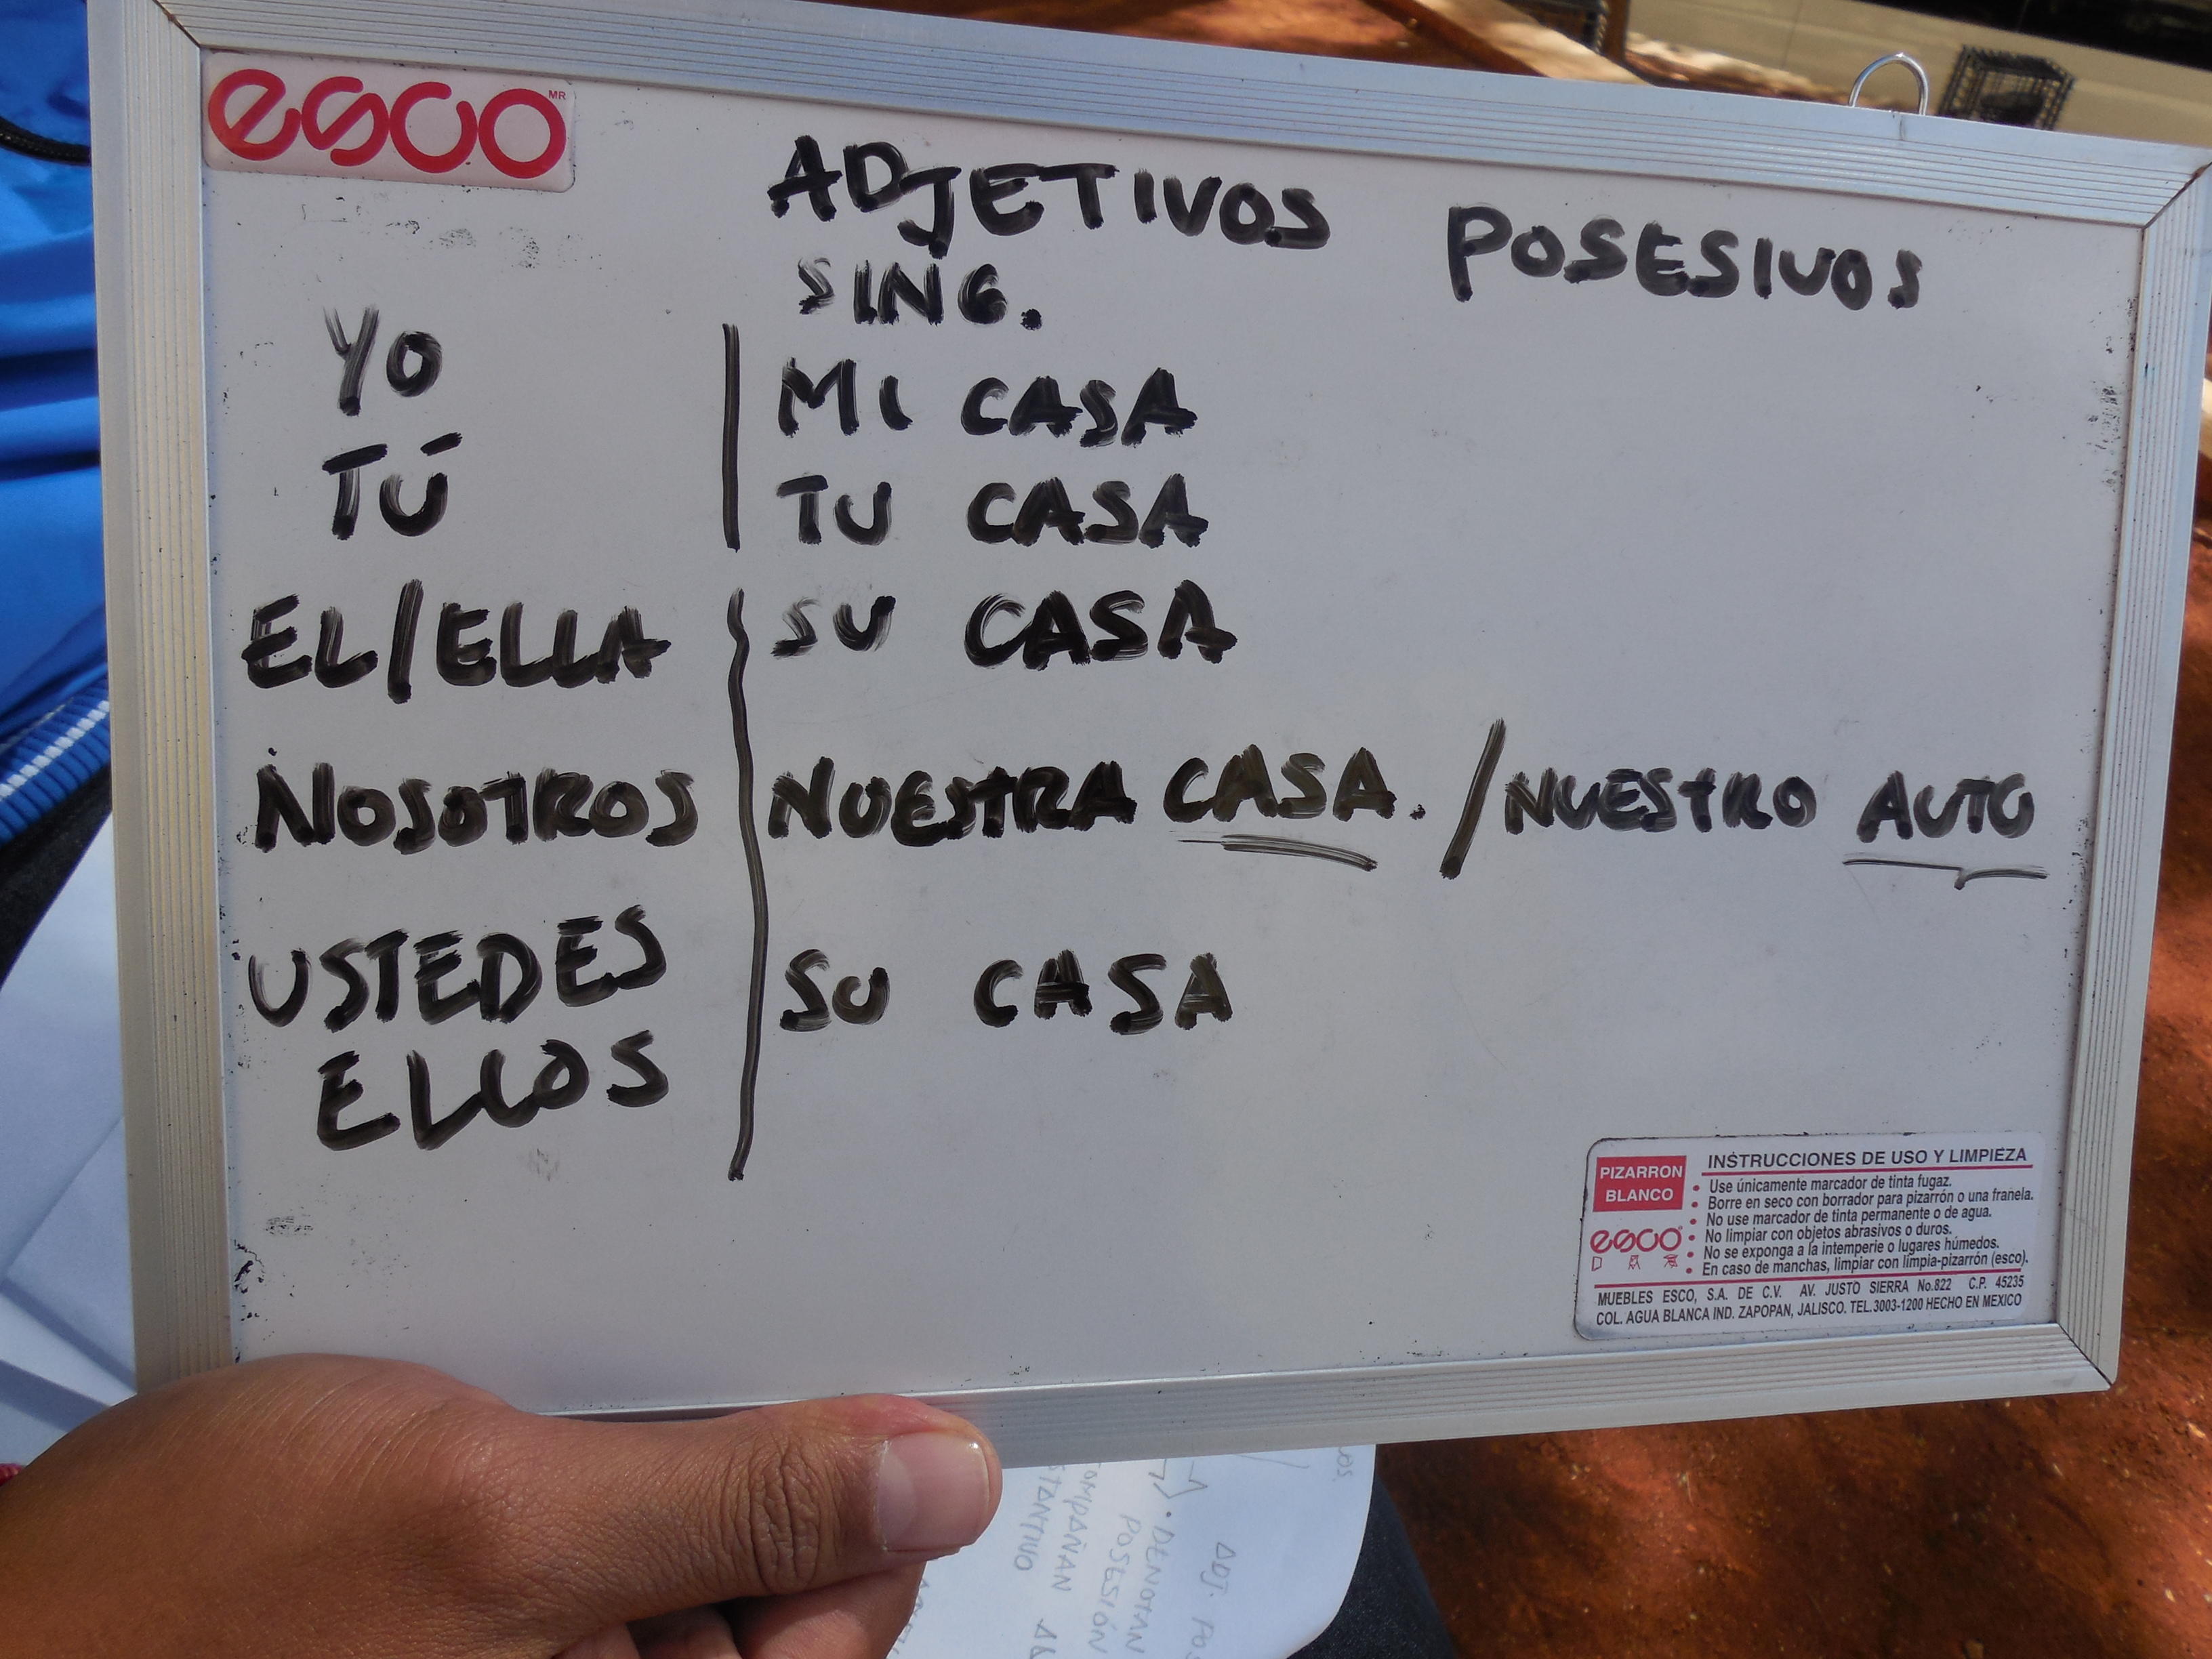 esco MR
ADJETIVOS POSESIVOS
SING.
YO MI CASA
TÚ TU CASA
EL/ELLA SU CASA
NOSOTROS NUESTRA CASA. / NUESTRO AUTO
USTEDES SU CASA
ELLOS
PIZARRON BLANCO
esco
INSTRUCCIONES DE USO Y LIMPIEZA
• Use únicamente marcador de tinta fugaz.
• Borre en seco con borrador para pizarrón o una franela.
• No use marcador de tinta permanente o de agua.
• No limpiar con objetos abrasivos o duros.
• No se exponga a la intemperie o lugares húmedos.
• En caso de manchas, limpiar con limpia-pizarrón (esco).
MUEBLES ESCO, S.A. DE C.V. AV. JUSTO SIERRA No.822 C.P. 45235
COL. AGUA BLANCA IND. ZAPOPAN, JALISCO. TEL.3003-1200 HECHO EN MEXICO
ADJ.
• DENOTAN
POSESIÓN